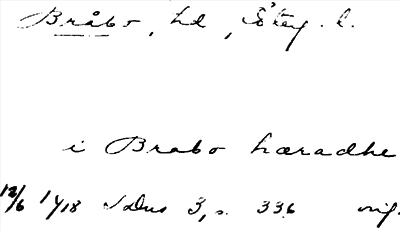 Bråbo, hd, Östg. l.
i Brabo hæradhe
12/6 1418 SDns 3, s. 336 orig.